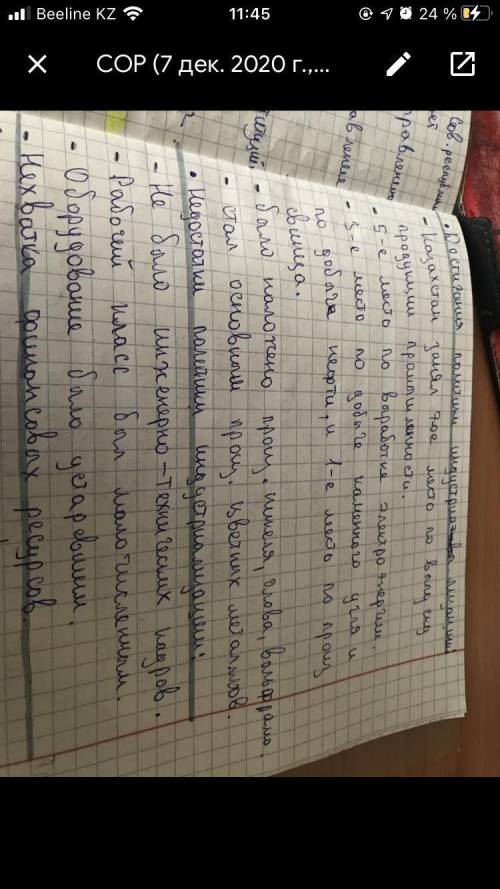 Beeline KZ 11:45 24 %
СОР (7 дек. 2020 г.,...
Сов. республик
управление
• Достижения политики индустриализации
- Казахстан занял 7ое место по выпуску
продукции промышленности.
- 5-е место по выработке электроэнергии.
- 3-е место по добыче каменного угля и
по добыче нефти, и 1-е место по произ
свинца.
- было наложено произ. никеля, олова, вольфрама.
- стал основным произ. цветных металлов.
• Недостатки политики индустриализацией:
- Не было инженерно-технических кадров.
- Рабочий класс был малочисленным.
- Оборудование было устаревшим.
- Нехватка финансовых ресурсов.